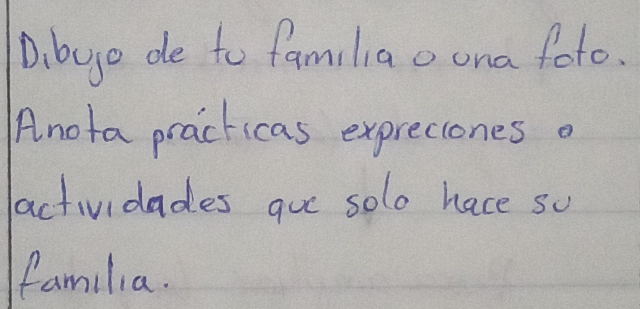 Dibujo de tu familia o una foto.
Anota prácticas expreciones o
actividades que solo hace su
familia.